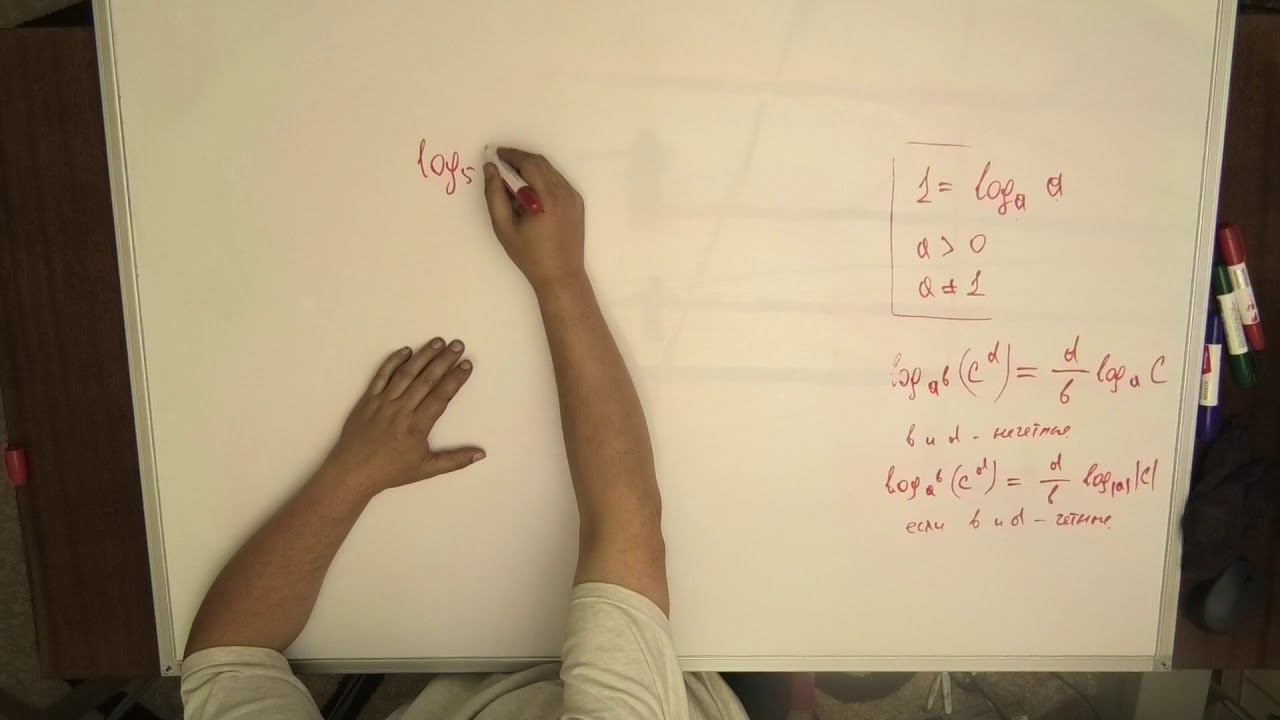 log₅
1 = logₐ a
a > 0
a ≠ 1
log_{a^b}(c^d) = d/b logₐ c
b и d - нечётные
log_{a^b}(c^d) = d/b log_{|a|}|c|
если b и d - чётные